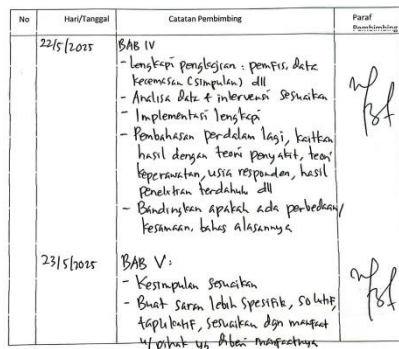 No Hari/Tanggal Catatan Pembimbing Paraf Pembimbing
22/5/2025 BAB IV
- Lengkapi pengkajian : pemfis, data
kecemasan (simpulan) dll
- Analisa Data + intervensi sesuaikan
- Implementasi lengkapi
- Pembahasan perdalam lagi, kaitkan
hasil dengan teori penyakit, teori
keperawatan, usia responden, hasil
penelitian terdahulu dll
- Bandingkan apakah ada perbedaan/
kesamaan. bahas alasannya
23/5/2025 BAB V :
- Kesimpulan sesuaikan
- Buat saran lebih spesifik, solutif,
aplikatif, sesuaikan dgn manfaat
u/ pihak yg diberi manfaatnya